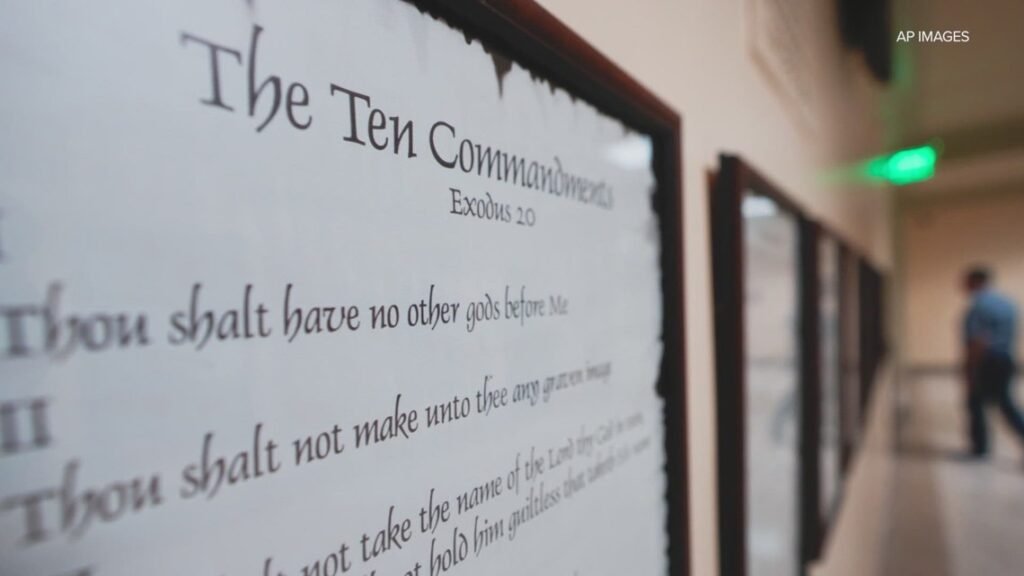 AP IMAGES
The Ten Commandments
Exodus 20
Thou shalt have no other gods before Me
II
Thou shalt not make unto thee any graven image
not take the name of the Lord thy God in vain,
hold him guiltless that taketh his name